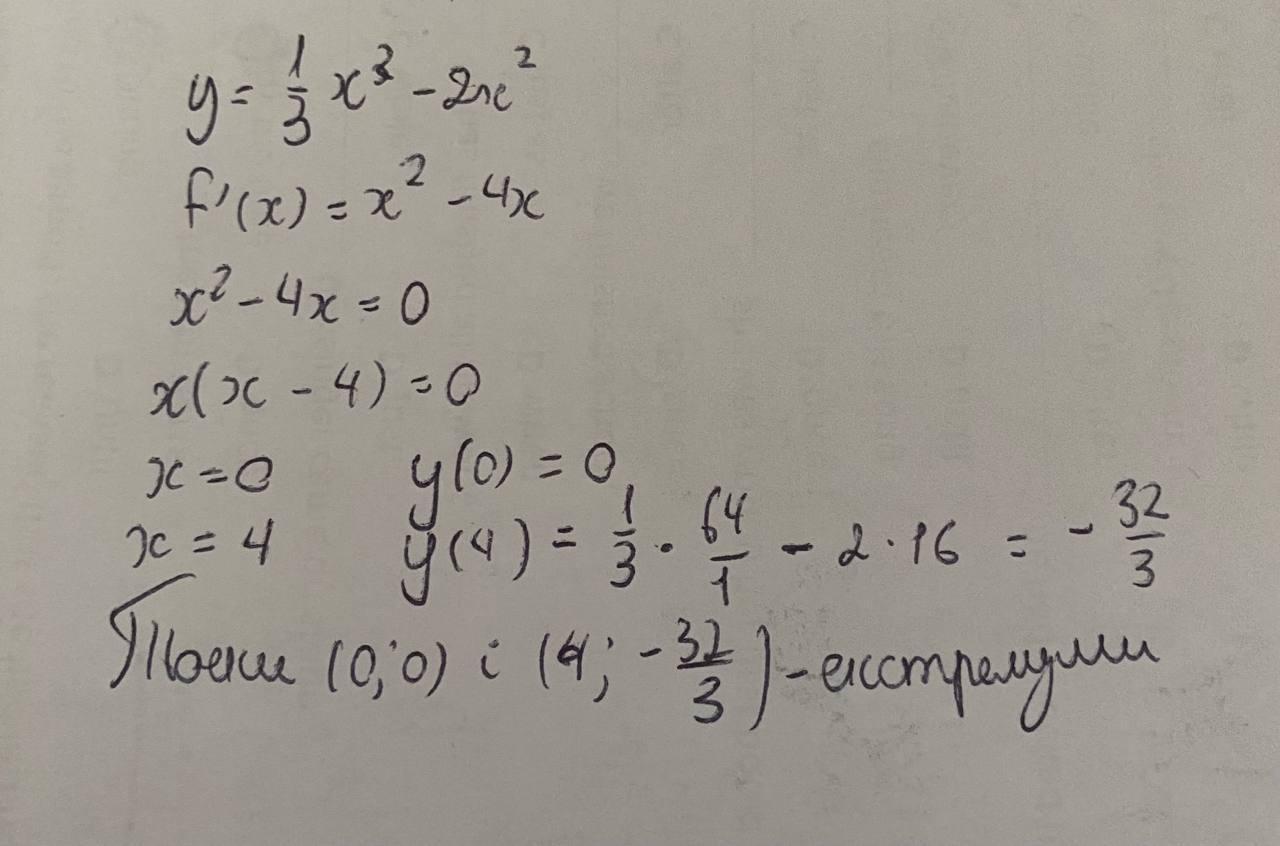 y = 1/3 x³ - 2x²
f'(x) = x² - 4x
x² - 4x = 0
x(x - 4) = 0
x = 0 y(0) = 0
x = 4 y(4) = 1/3 · 64/1 - 2 · 16 = - 32/3
Точки (0; 0) і (4; -32/3) - екстремуми